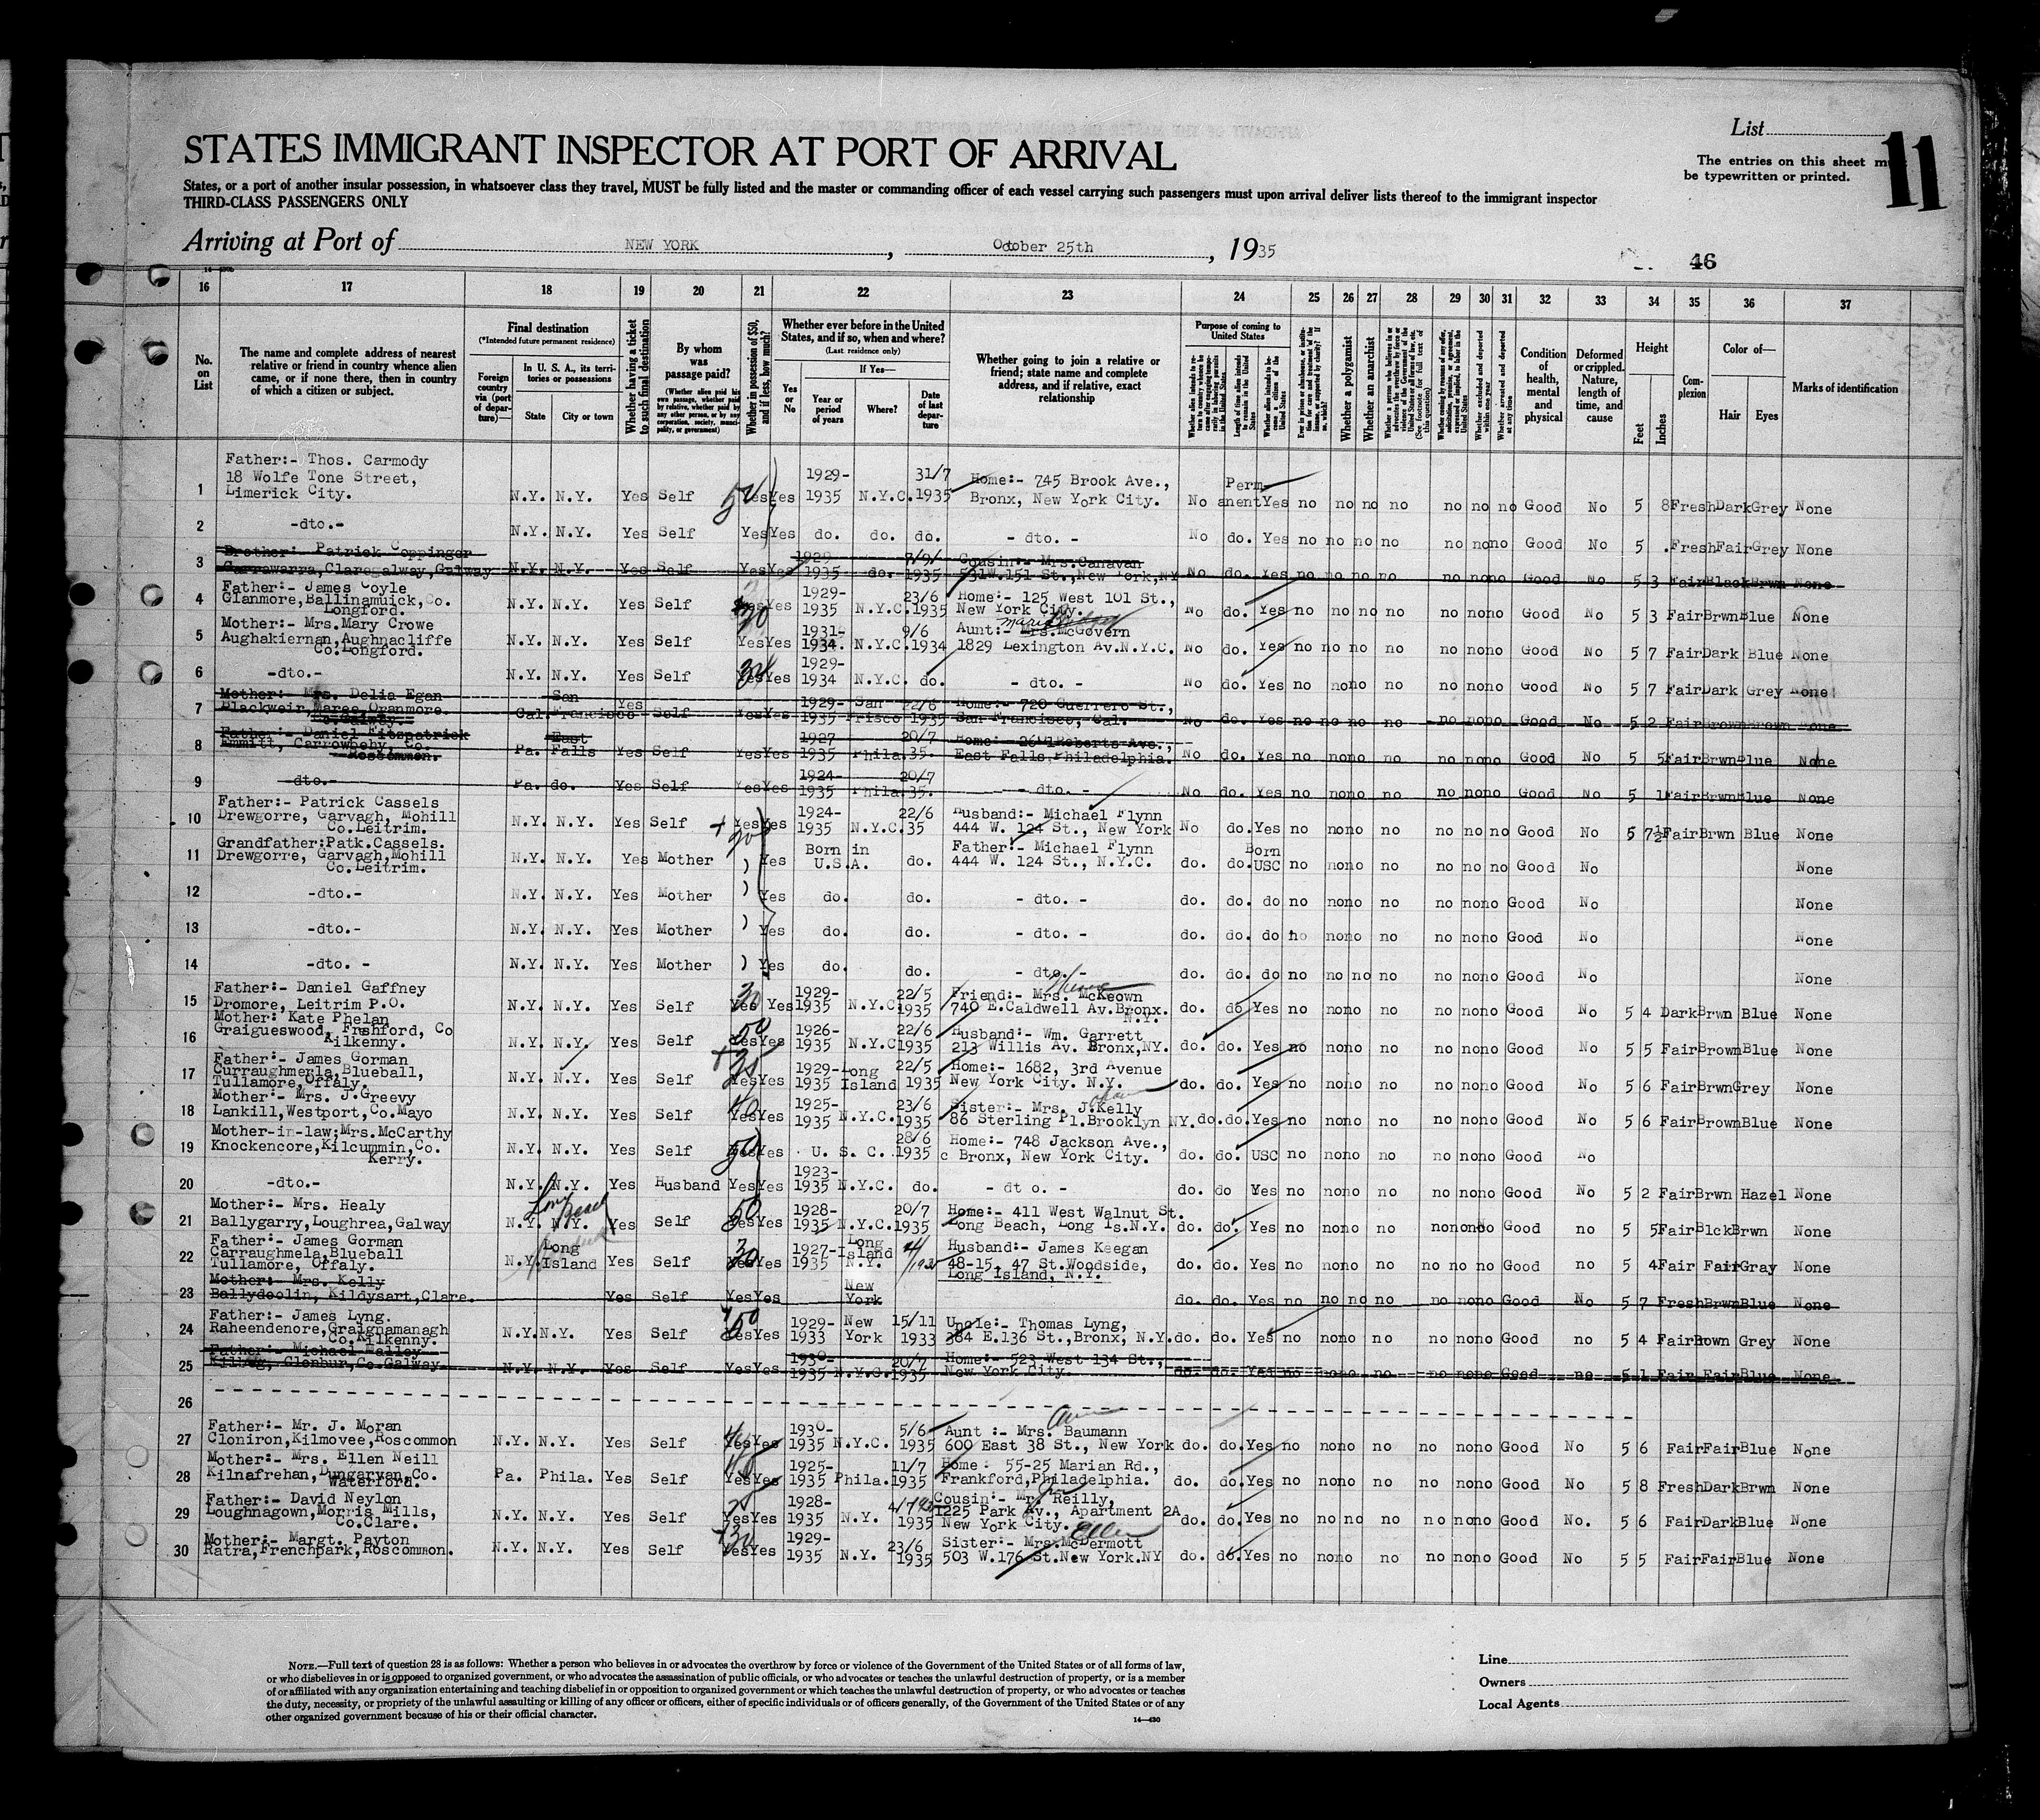 List
11
STATES IMMIGRANT INSPECTOR AT PORT OF ARRIVAL
The entries on this sheet must
be typewritten or printed.
States, or a port of another insular possession, in whatsoever class they travel, MUST be fully listed and the master or commanding officer of each vessel carrying such passengers must upon arrival deliver lists thereof to the immigrant inspector
THIRD-CLASS PASSENGERS ONLY
Arriving at Port of NEW YORK, October 25th, 1935
46
16 17 18 19 20 21 22 23 24 25 26 27 28 29 30 31 32 33 34 35 36 37
No. on List
The name and complete address of nearest relative or friend in country whence alien came, or if none there, then in country of which a citizen or subject.
Final destination
(*Intended future permanent residence)
Foreign country via (port of departure)—
In U. S. A., its territories or possessions
State
City or town
Whether having a ticket to such final destination
By whom was passage paid?
(Whether alien paid his own passage, whether paid by relative, whether paid by any other person, or by any corporation, society, municipality, or government)
Whether in possession of $50, and if less, how much?
Whether ever before in the United States, and if so, when and where?
(Last residence only)
Yes or No
If Yes—
Year or period of years
Where?
Date of last departure
Whether going to join a relative or friend; state name and complete address, and if relative, exact relationship
Purpose of coming to United States
Length of time alien intends to remain in the United States
Whether alien intends to become a citizen of the United States
Whether a polygamist
Whether an anarchist
Whether excluded and deported within one year
Whether arrested and deported at any time
Condition of health, mental and physical
Deformed or crippled. Nature, length of time, and cause
Height
Feet
Inches
Complexion
Color of—
Hair
Eyes
Marks of identification
1 Father:- Thos. Carmody
18 Wolfe Tone Street,
Limerick City. N.Y. N.Y. Yes Self Yes Yes 1929-1935 N.Y.C. 31/7 1935 Home:- 745 Brook Ave., Bronx, New York City. No Permanent Yes no no no no no no no Good No 5 8 Fresh Dark Grey None
2 -dto.- N.Y. N.Y. Yes Self Yes Yes do. do. do. - dto. - No do. Yes no no no no no no no Good No 5 . Fresh Fair Grey None
3 Brother:- Patrick Coppinger
Carrowarra, Claregalway, Galway N.Y. N.Y. Yes Self Yes Yes 1929-1935 do. 7/9/ 1935 Cousin:- Mrs. Canavan 531 W. 151 St., New York, NY No do. Yes no no no no no no no Good No 5 3 Fair Black Brwn None
4 Father:- James Coyle
Glanmore, Ballinamuick, Co.
Longford. N.Y. N.Y. Yes Self Yes 30 Yes 1929-1935 N.Y.C. 23/6 1935 Home:- 125 West 101 St., New York City. No do. Yes no no no no no no no Good No 5 3 Fair Brwn Blue None
5 Mother:- Mrs. Mary Crowe
Aughakiernan, Aughnacliffe
Co. Longford. N.Y. N.Y. Yes Self Yes Yes 1931-1934. N.Y.C. 9/6 1934 Aunt:- Mrs. McGovern 1829 Lexington Av. N.Y.C. No do. Yes no no no no no no no Good No 5 7 Fair Dark Blue None
6 -dto.- N.Y. N.Y. Yes Self Yes Yes 1929-1934 N.Y.C. do. - dto. - No do. Yes no no no no no no no Good No 5 7 Fair Dark Grey None
7 Mother:- Mrs. Delia Egan
Blackweir, Maree, Oranmore.
Co. Galway. Cal. San Francisco Yes Self Yes Yes 1929-1935 San Frisco 22/6 1935 Home:- 720 Guerrero St., San Francisco, Cal. No do. Yes no no no no no no no Good No. 5 2 Fair Brown Brown None
8 Father:- Daniel Fitzpatrick
Emmitt, Carrowbehy, Co.
Roscommon. Pa. East Falls Yes Self Yes Yes 1927-1935 Phila. 20/7 35. East Falls, Philadelphia. No do. Yes no no no no no no no Good No 5 5 Fair Brwn Blue None
9 -dto.- Pa. do. Yes Self Yes Yes 1924-1935 Phila. 20/7 35. - dto. - No do. Yes no no no no no no no Good No 5 1 Fair Brwn Blue None
10 Father:- Patrick Cassels
Drewgorre, Garvagh, Mohill
Co. Leitrim. N.Y. N.Y. Yes Self Yes Yes 1924-1935 N.Y.C. 22/6 35 Husband:- Michael Flynn 444 W. 124 St., New York No do. Yes no no no no no no no Good No 5 7½ Fair Brwn Blue None
11 Grandfather: Patk. Cassels.
Drewgorre, Garvagh, Mohill
Co. Leitrim. N.Y. N.Y. Yes Mother ) Yes Born in U.S.A. do. Father:- Michael Flynn 444 W. 124 St., N.Y.C. do. do. Born USC no no no no no no no Good No None
12 -dto.- N.Y. N.Y. Yes Mother ) Yes do. do. - dto. - do. do. do no no no no no no no Good No None
13 -dto.- N.Y. N.Y. Yes Mother ) Yes do. do. - dto. - do. do. do no no no no no no no Good No None
14 -dto. - N.Y. N.Y. Yes Mother ) Yes do. do. - dto. - do. do. do no no no no no no no Good No None
15 Father:- Daniel Gaffney
Dromore, Leitrim P.O. N.Y. N.Y. Yes Self Yes 30 Yes 1929-1935 N.Y.C. 22/5 1935 Friend:- Mrs. McKeown 740 E. Caldwell Av. Bronx. N.Y. do. do Yes no no no no no no no Good No 5 4 Dark Brwn Blue None
16 Mother: Kate Phelan
Graigueswood, Freshford, Co
Kilkenny. N.Y. N.Y. Yes Self Yes 50 Yes 1926-1935 N.Y.C 22/6 1935 Husband:- Wm. Garrett 213 Willis Av. Bronx, NY. do. do. Yes no no no no no no no Good No 5 5 Fair Brown Blue None
17 Father:- James Gorman
Curraughmerla, Blueball,
Tullamore, Offaly. N.Y. N.Y. Yes Self Yes Yes 1929-1935 Long Island 22/5 1935 Home:- 1682, 3rd Avenue New York City. N.Y. do. do. Yes no no no no no no no Good No 5 6 Fair Brwn Grey None
18 Mother:- Mrs. J. Greevy
Lankill, Westport, Co. Mayo N.Y. N.Y. Yes Self Yes 40 Yes 1925-1935 N.Y.C. 23/6 1935 Sister:- Mrs. J. Kelly 86 Sterling Pl. Brooklyn NY. do. do. Yes no no no no no no no Good No 5 6 Fair Brown Blue None
19 Mother-in-law; Mrs. McCarthy
Knockencore, Kilcummin, Co.
Kerry. N.Y. N.Y. Yes Self Yes 50 Yes U. S. C. 28/6 1935 Home:- 748 Jackson Ave., Bronx, New York City. do. do. USC no no no no no no no Good No
20 -dto.- N.Y. N.Y. Yes Husband Yes Yes 1923-1935 N.Y.C. do. - dt o. - do. do Yes no no no no no no no Good No 5 2 Fair Brwn Hazel None
21 Mother:- Mrs. Healy
Ballygarry, Loughrea, Galway N.Y. N.Y. Long Beach Yes Self Yes 50 Yes 1928-1935 N.Y.C. 20/7 1935 Home:- 411 West Walnut St. Long Beach, Long Is. N.Y. do. do. Yes no no no no no no no Good no 5 5 Fair Blck Brwn None
22 Father:- James Gorman
Carraughmela, Blueball
Tullamore, Offaly. N.Y. Long Island Yes Self Yes 30 Yes 1927-1935 Long Island N.Y. Husband:- James Keegan 48-15, 47 St. Woodside, Long Island, N.Y. do. do. Yes no no no no no no no Good no 5 4 Fair Fair Gray None
23 Mother:- Mrs. Kelly
Ballydoolin, Kildysart, Clare. Yes Self Yes Yes New York do. do. Yes no no no no no no no Good No 5 7 Fresh Brwn Blue None
24 Father:- James Lyng.
Raheendenore, Graignamanagh
Co. Kilkenny. N.Y. N.Y. Yes Self Yes 50 Yes 1929-1933 New York 15/11 1933 Uncle:- Thomas Lyng, 384 E. 136 St., Bronx, N.Y. do. do. Yes no no no no no no no Good no 5 4 Fair Bown Grey None
25 Father:- Michael Malley
Kilbeg, Clonbur, Co. Galway N.Y. N.Y. Yes Self Yes Yes 1930-1935 N.Y.C. 20/7 1935 Home:- 523 West 134 St., New York City. do. do. Yes no no no no no no no Good no 5 1 Fair Fair Blue None
26
27 Father:- Mr. J. Moran
Cloniron, Kilmovee, Roscommon N.Y. N.Y. Yes Self Yes Yes 1930-1935 N.Y.C. 5/6 1935 Aunt :- Mrs. Baumann 600 East 38 St., New York do. do. Yes no no no no no no no Good No 5 6 Fair Fair Blue None
28 Mother:- Mrs. Ellen Neill
Kilnafrehan, Dungarvan, Co.
Waterford. Pa. Phila. Yes Self Yes Yes 1925-1935 Phila. 11/7 1935 Home: 55-25 Marian Rd., Frankford, Philadelphia. do. do. Yes no no no no no no no Good No 5 8 Fresh Dark Brwn None
29 Father:- David Neylon
Loughnagown, Morris Mills,
Co. Clare. N.Y. N.Y. Yes Self Yes Yes 1928-1935 N.Y. 4/7 1935 Cousin:- Mr. Reilly, 1225 Park Av., Apartment 2A New York City. do. do. Yes no no no no no no no Good No. 5 6 Fair Dark Blue None
30 Mother:- Margt. Payton
Ratra, Frenchpark, Roscommon. N.Y. N.Y. Yes Self Yes 30 Yes 1929-1935 N.Y. 23/6 1935 Sister:- Mrs. McDermott Ellen 503 W. 176 St. New York. NY do. do. Yes no no no no no no no Good No 5 5 Fair Fair Blue None
NOTE.—Full text of question 28 is as follows: Whether a person who believes in or advocates the overthrow by force or violence of the Government of the United States or of all forms of law,
or who disbelieves in or is opposed to organized government, or who advocates the assassination of public officials, or who advocates or teaches the unlawful destruction of property, or is a member
of or affiliated with any organization entertaining and teaching disbelief in or opposition to organized government or which teaches the unlawful destruction of property, or who advocates or teaches
the duty, necessity, or propriety of the unlawful assaulting or killing of any officer or officers, either of specific individuals or of officers generally, of the Government of the United States or of any
other organized government because of his or their official character.
14—430
Line
Owners
Local Agents